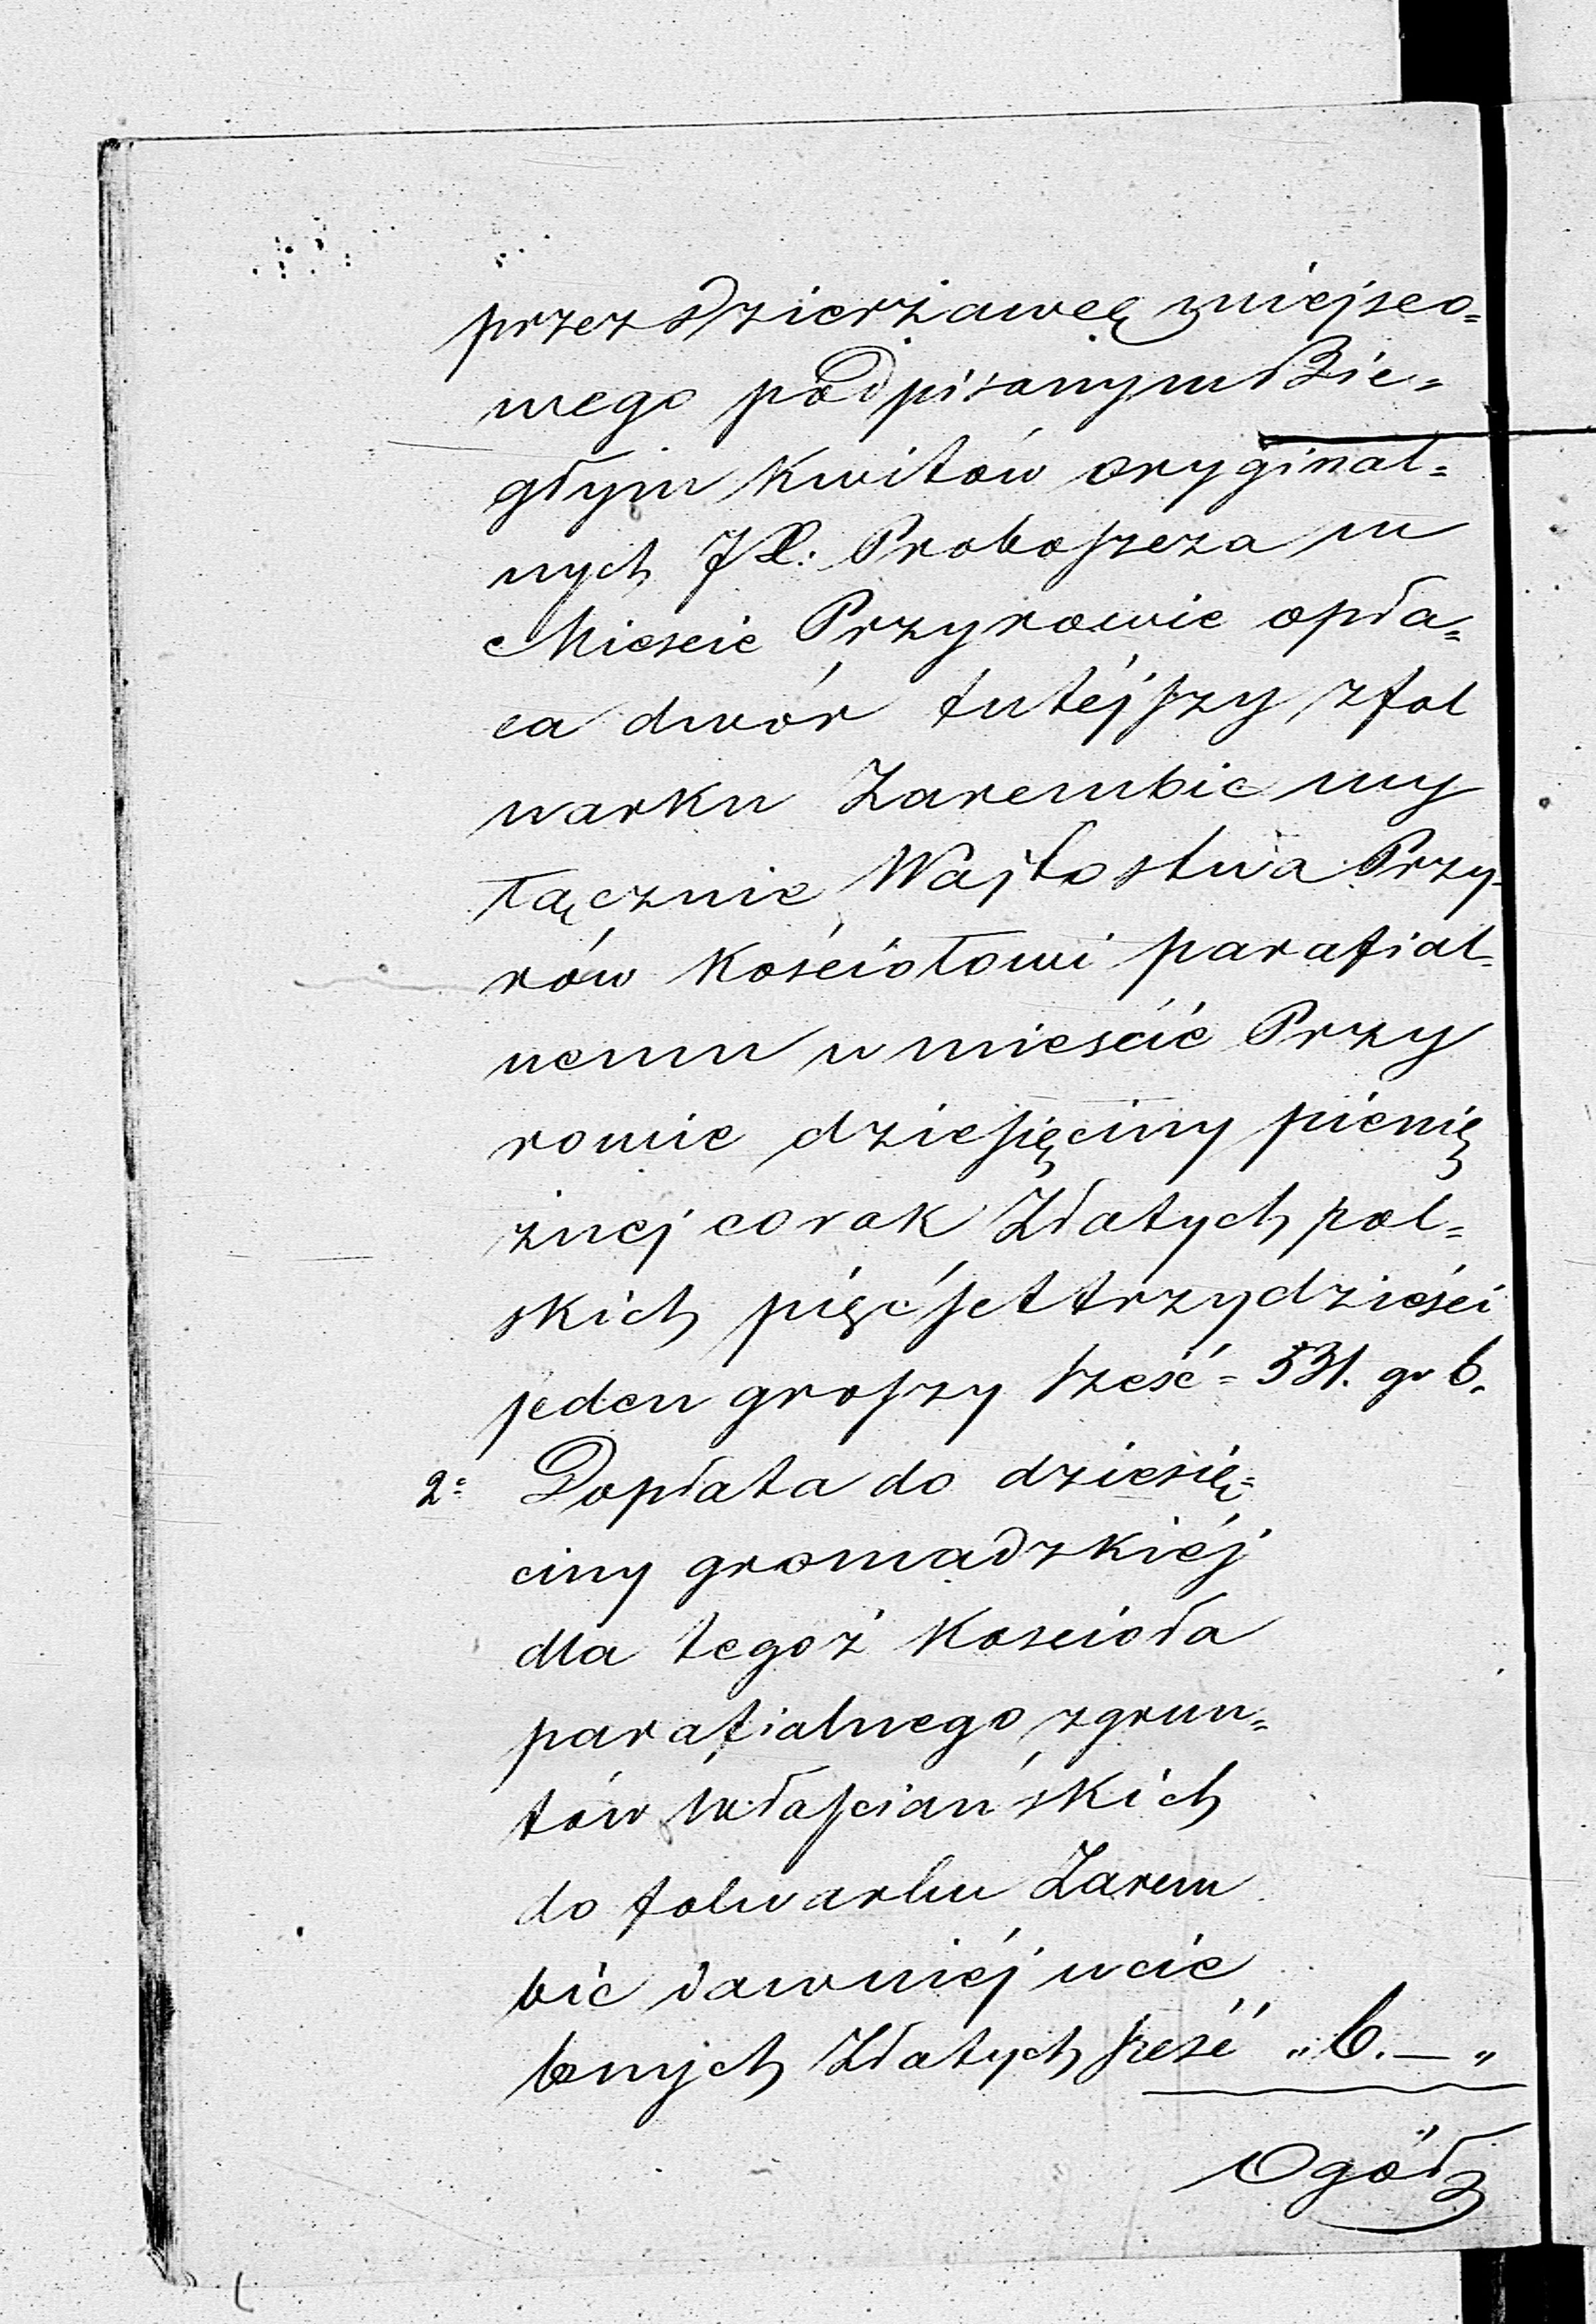 przez Dzierżawcę miejsco=
wego podpisanym Bie=
głym Kwitów oryginal=
nych JX: Proboszcza w
Miescie Przyrowie opła=
ca dwór tutéjszy z fol
warku Zarembic wy
łącznie Wójtostwa Przy-
rów Kościołowi parafial-
nemu w mieście Przy
rowie dziesięciny pienię
żnej co rok Złotych pol=
skich pięćset trzydzieści
jeden groszy sześć = 531. gr 6.
2= Dopłata do dziesię=
ciny gromadzkiéj
dla tegoż Koscioła
parafialnego z grun=
tów włościańskich
do folwarku Zarem
bic dawniéj wcie
lonych Złotych sześć „ 6. — „
Ogół